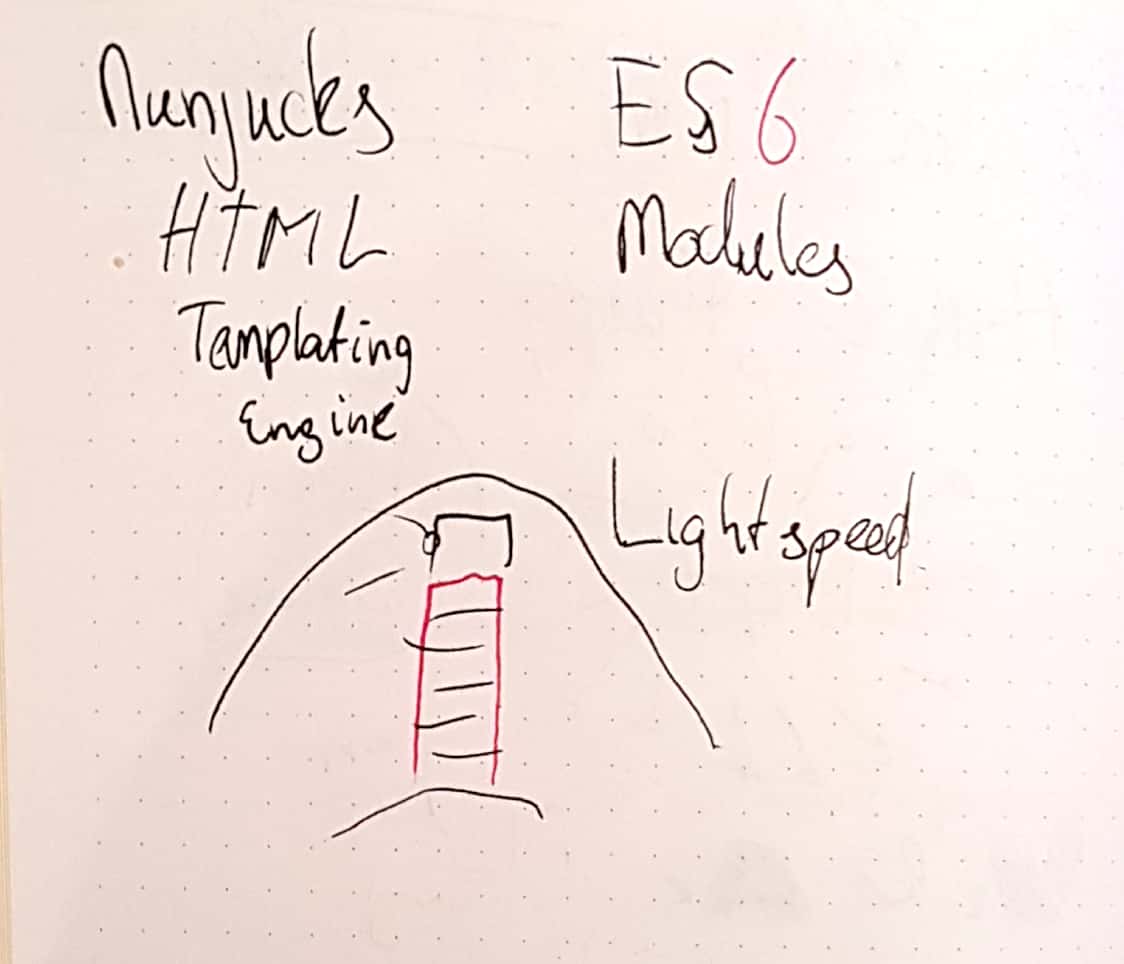 Nunjucks
HTML
Tamplating
Engine
ES6
Modules
Lightspeed